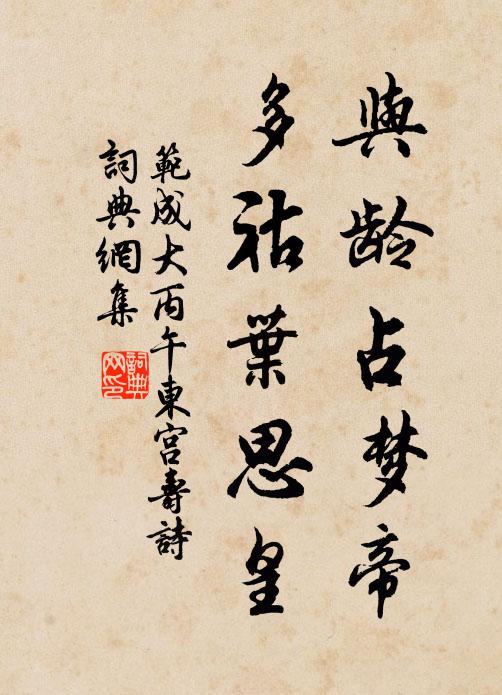 與龄占梦帝
多祜葉思皇
範成大丙午東宫壽詩
詞典網集
詞典网印